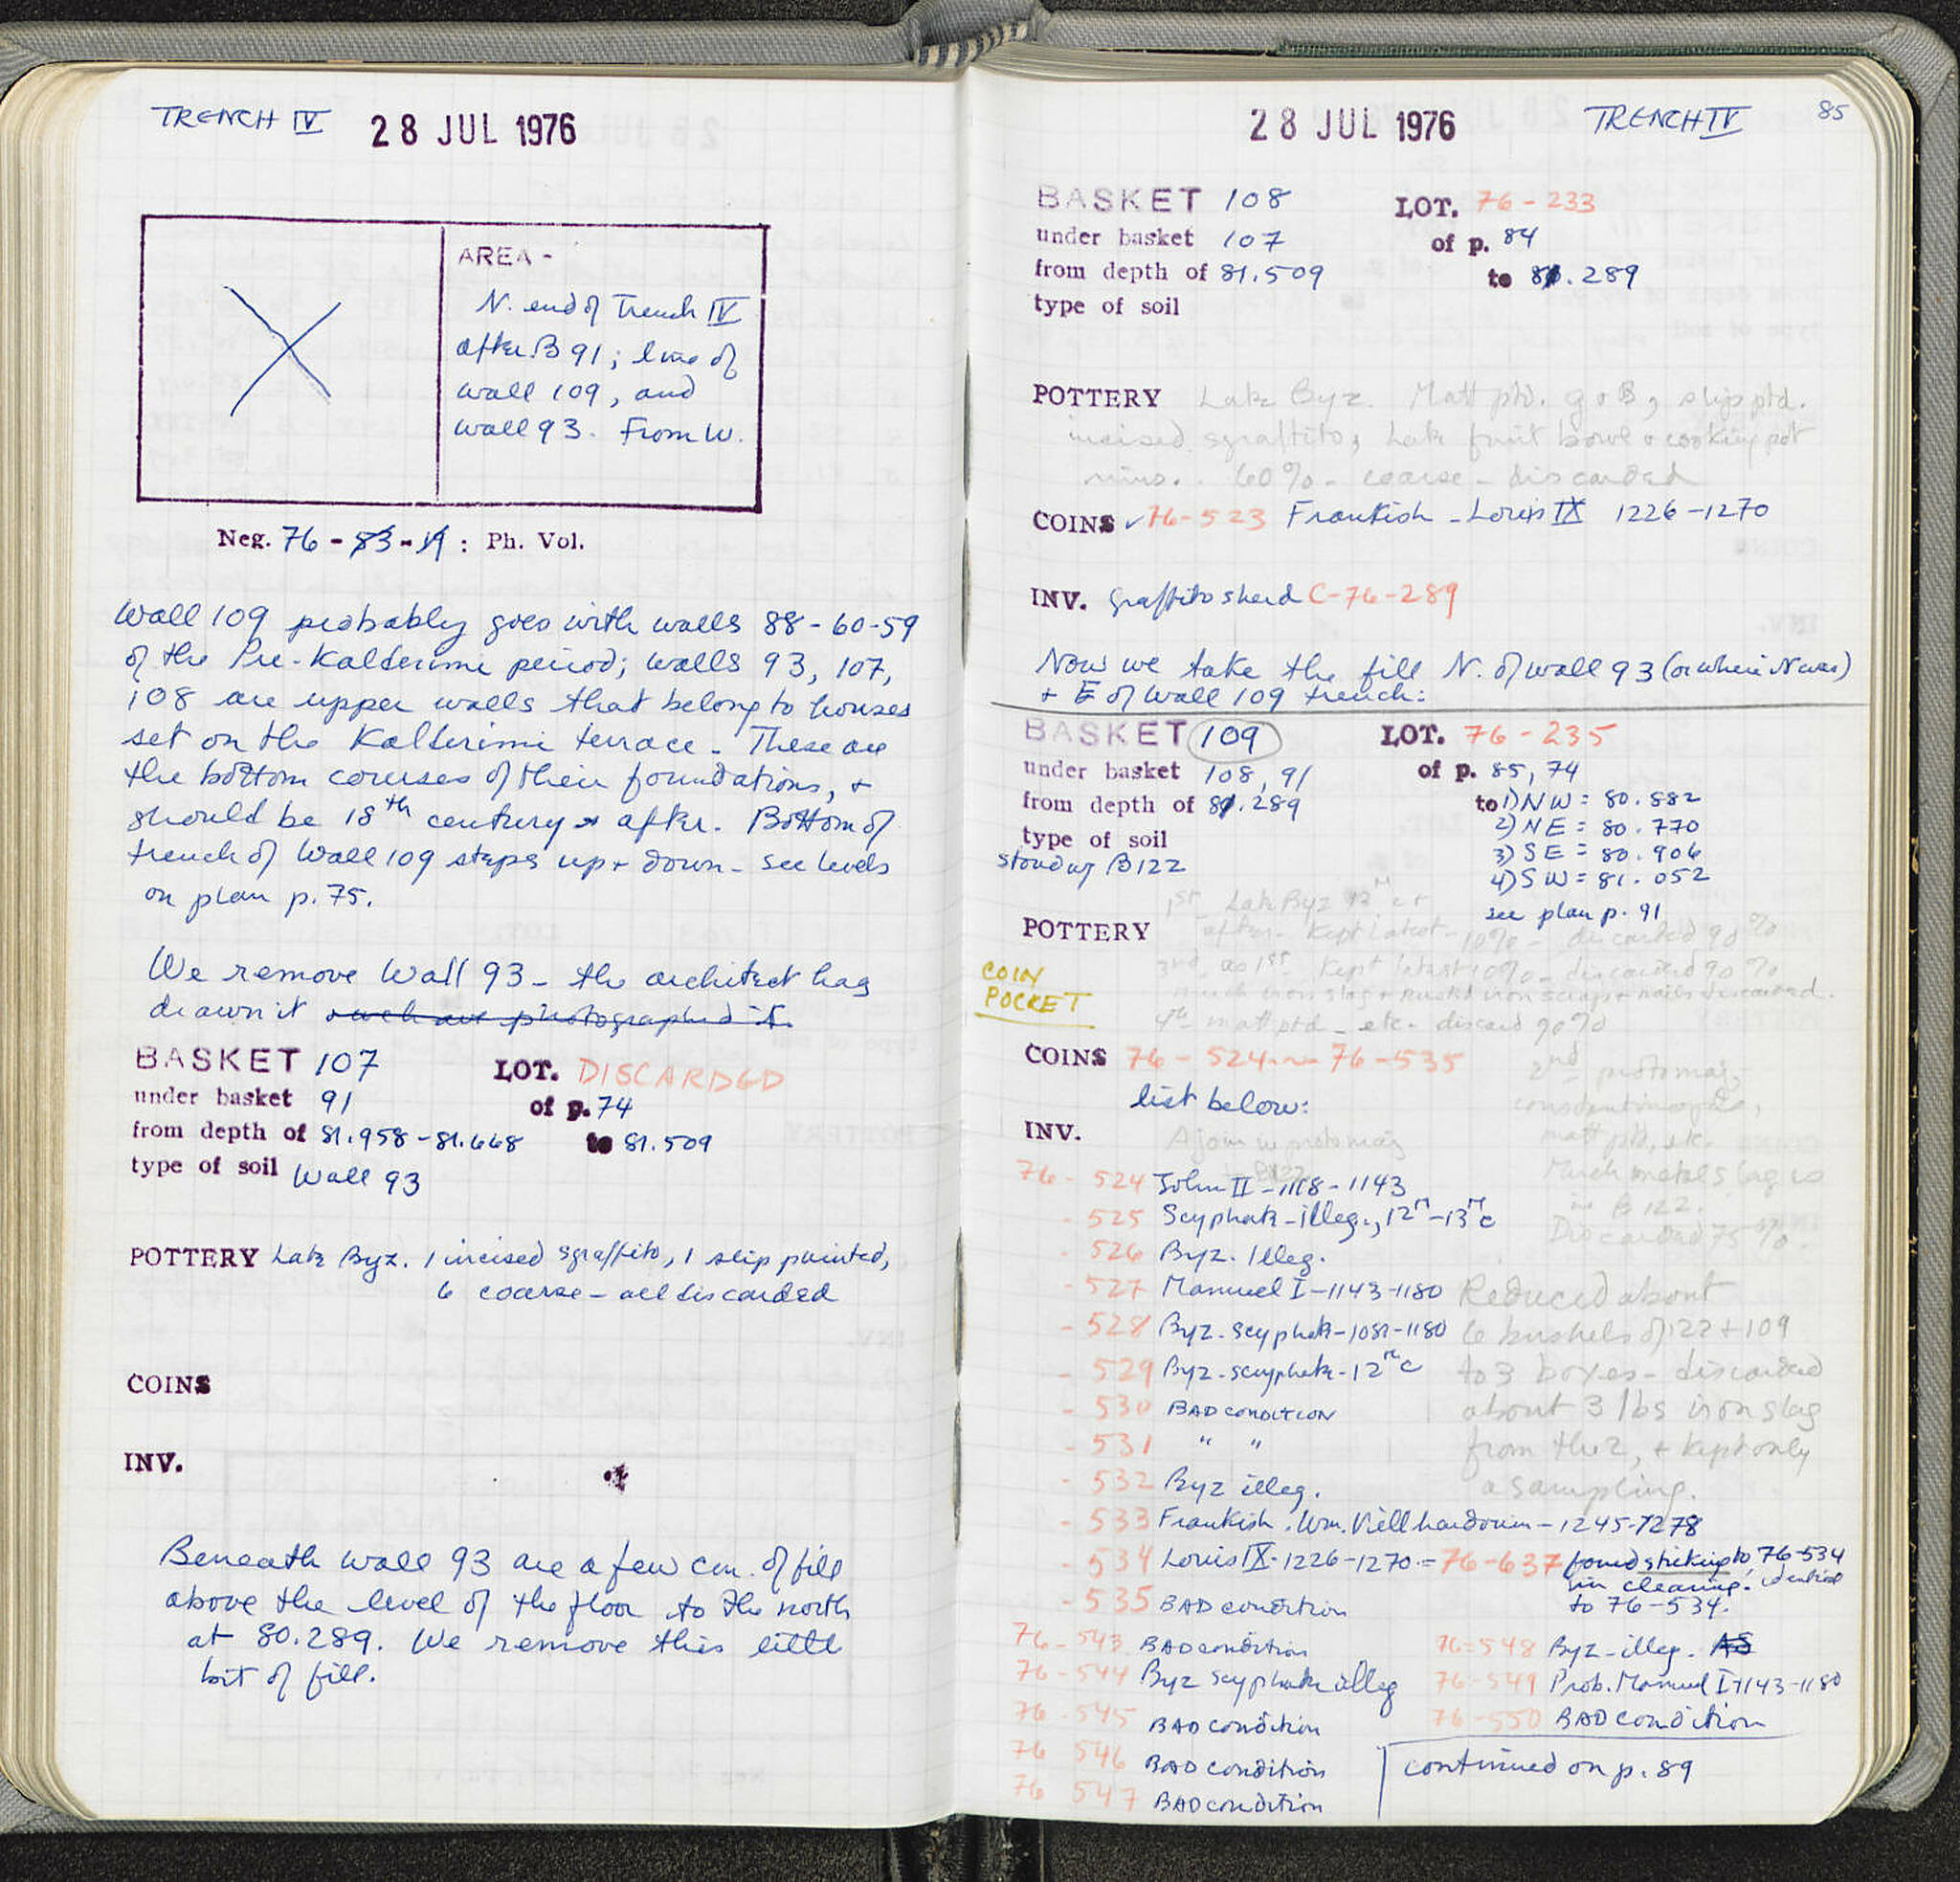 TRENCH IV 28 JUL 1976
AREA -
N. end of Trench IV
after B 91; line of
wall 109, and
wall 93. From W.
Neg. 76 - 83 - 19 : Ph. Vol.
Wall 109 probably goes with walls 88-60-59
of the Pre-Kalderimi period; walls 93, 107,
108 are upper walls that belong to houses
set on the Kalderimi terrace. These are
the bottom courses of their foundations, +
should be 18th century + after. Bottom of
trench of Wall 109 steps up + down - see levels
on plan p. 75.
We remove Wall 93 - the architect has
drawn it and photographed it.
BASKET 107 LOT. DISCARDED
under basket 91 of p. 74
from depth of 81.958-81.668 to 81.509
type of soil Wall 93
POTTERY Late Byz. 1 incised sgraffito, 1 slip painted,
6 coarse - all discarded
COINS
INV.
Beneath wall 93 are a few cm. of fill
above the level of the floor to the north
at 80.289. We remove this little
bit of fill.
28 JUL 1976 TRENCH IV 85
BASKET 108 LOT. 76-233
under basket 107 of p. 84
from depth of 81.509 to 81.289
type of soil
POTTERY Late Byz. Matt ptd. g + B, slip ptd.
incised sgraffito, Late fruit bowl + cooking pot
rims. 60% - coarse - discarded
COINS ✓ 76-523 Frankish - Louis IX 1226-1270
INV. Graffito sherd C-76-289
Now we take the fill N. of wall 93 (or where N was)
+ E of Wall 109 trench:
BASKET 109 LOT. 76-235
under basket 108, 91 of p. 85, 74
from depth of 81.289 to 1) NW = 80.882
2) NE = 80.770
type of soil 3) SE = 80.906
4) SW = 81.052
B 122
see plan p. 91
1st Late Byz 12th c +
POTTERY after - kept latest - 10% - discarded 90%
3rd as 1st kept latest 10% - discarded 90%
much iron slag + rusted iron scrap + nails discarded.
4th matt ptd - etc. discard 90%
COIN
POCKET
COINS 76-524 76-535
list below:
2nd protomaj,
matt ptd, etc.
Much metal slag
in B 122.
Discarded 75%.
INV. A join w protomaj
B122
76-524 John II - 1118-1143
-525 Scyphate - illeg., 12th-13th c
-526 Byz. Illeg.
-527 Manuel I - 1143-1180
-528 Byz. scyphate - 1081-1180
-529 Byz. scyphate - 12th c
-530 BAD CONDITION
-531 " "
-532 Byz illeg.
Reduced about
6 bushels of 122 + 109
to 3 boxes - discarded
about 3 lbs iron slag
from the 2, + kept only
a sampling.
-533 Frankish. Wm. Villhardouin - 1245-1278
-534 Louis IX - 1226-1270 = 76-637 found sticking to 76-534
in cleaning. identical
to 76-534.
-535 BAD condition
76-543 BAD condition 76-548 Byz - illeg.
76-544 Byz scyphate illeg 76-549 Prob. Manuel I 1143-1180
76-545 BAD condition 76-550 BAD condition
76 546 BAD condition continued on p. 89
76 547 BAD condition